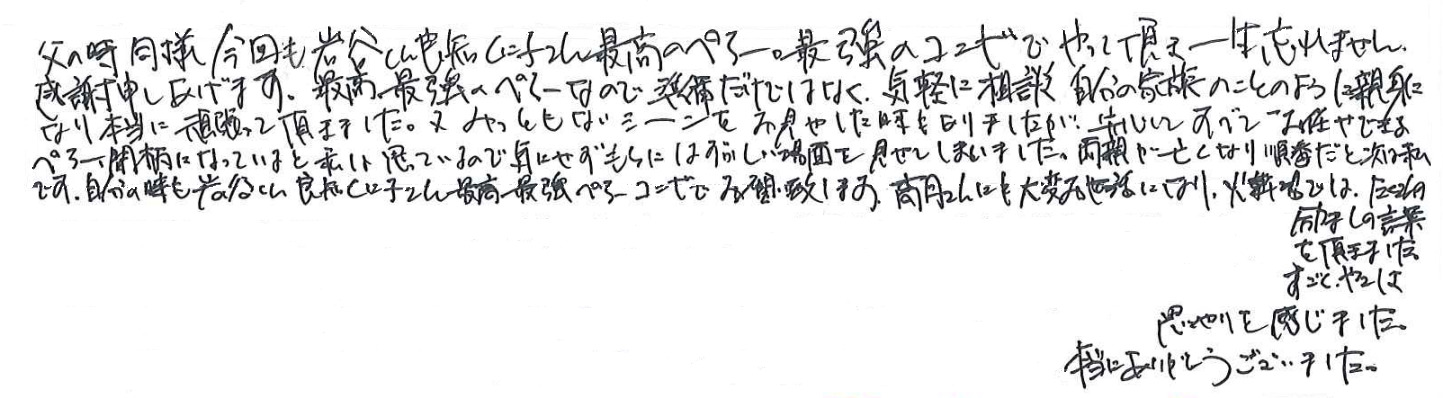 父の時同様、今回も岩谷くん 最高のペアー。最強のコンビでやって頂き一生忘れません。
感謝申し上げます。最高、最強のペアーなので 準備だけではなく、気軽に相談 自分の家族のことのように親身に
なり本当に頑張って頂きました。又みっともないシーンをお見せした時も有りましたが、 すべてお任せできる
ペアー、間柄になっていると私は思っているので気にせずもろにはずかしい場面を見せてしまいました。両親が亡くなり順番だと次は私
です。自分の時も岩谷くん 最高、最強ペアー コンビでお願い致します。高月さんにも大変お世話になり、火葬場では、たくさんの
励ましの言葉
を頂きました。
すごく、
思いやりを感じました。
本当にありがとうございました。